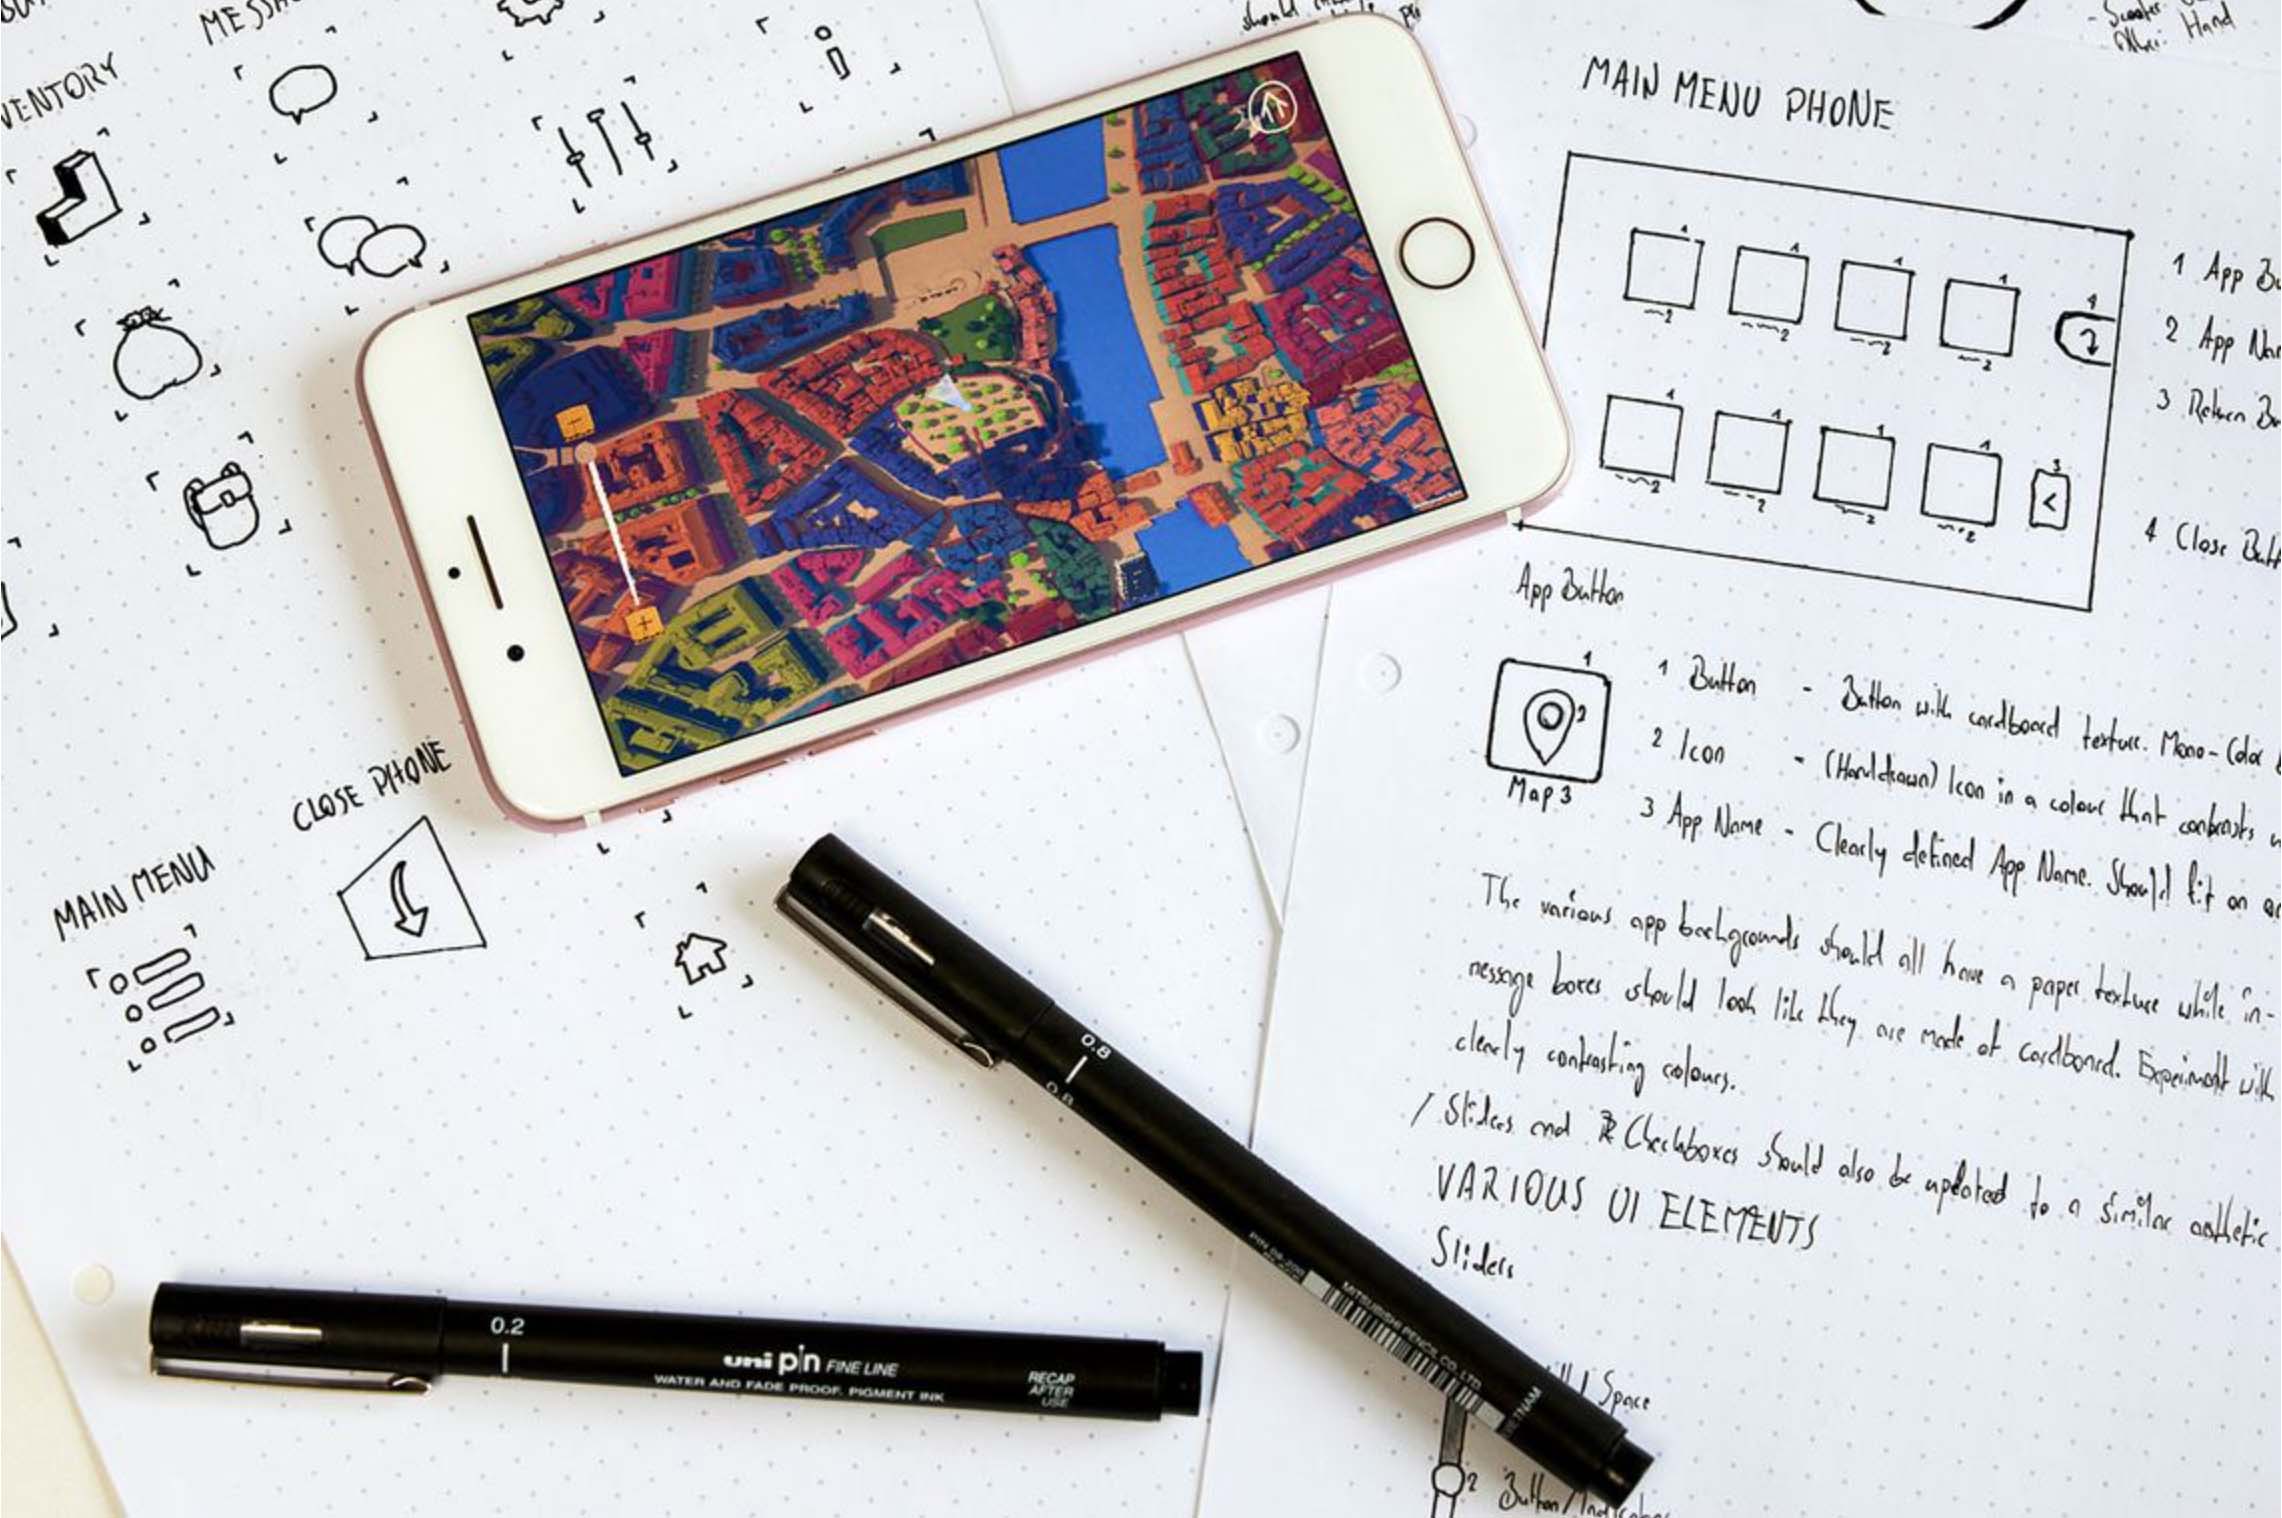 INVENTORY
MAIN MENU
CLOSE PHONE
should
Hand
MAIN MENU PHONE
1 App
2 App
3 Return
4 Close
App Button
1
2
Map 3
1 Button - Button with cardboard texture. Mono-Color
2 Icon - (Handdrawn) Icon in a colour that contrasts
3 App Name - Clearly defined App Name. Should fit on
The various app backgrounds should all have a paper texture while in-
message boxes should look like they are made of cardboard. Experiment with
clearly contrasting colours.
/ Sliders and Checkboxes should also be updated to a similar aesthetic
VARIOUS UI ELEMENTS
Sliders
Space
2 Button/
0.8
0.8
MITSUBISHI PENCIL CO. LTD
0.2
uni pin FINE LINE
WATER AND FADE PROOF, PIGMENT INK
RECAP
AFTER
USE